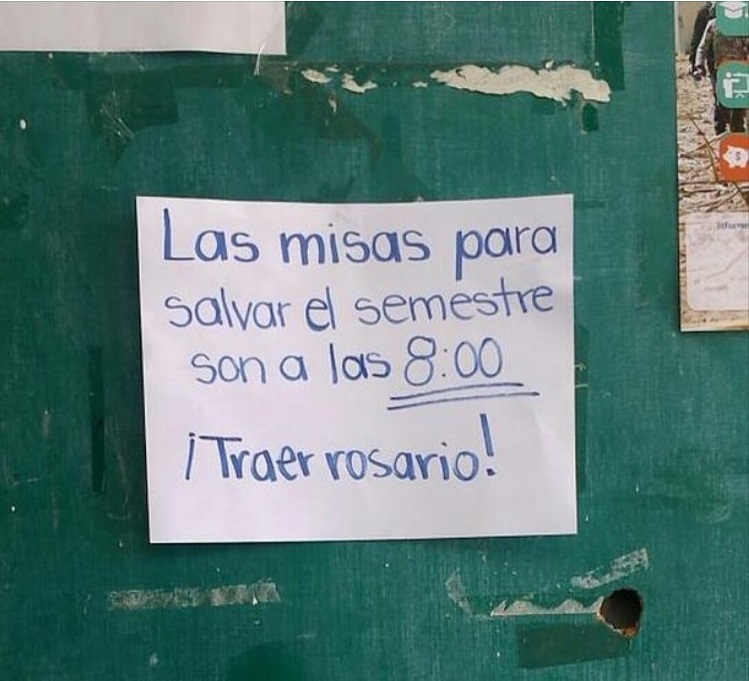 Las misas para
salvar el semestre
son a las 8:00
¡Traer rosario!